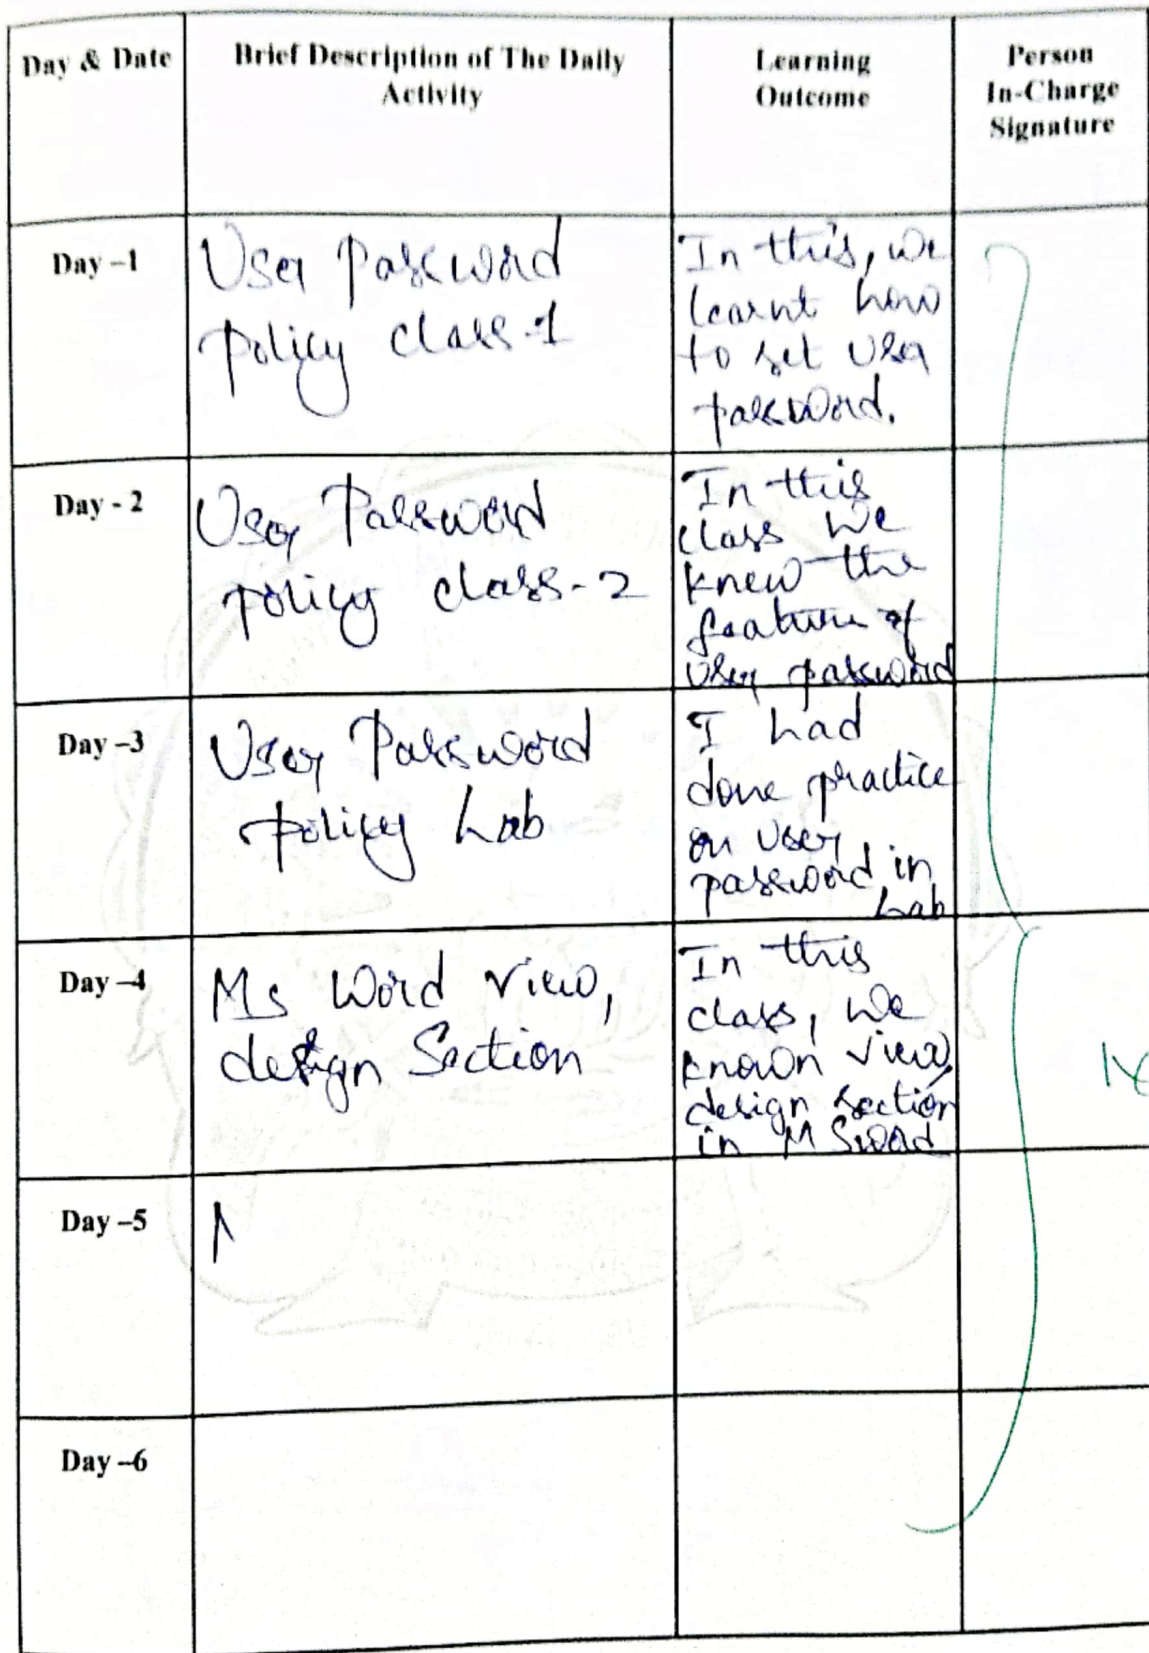 Day & Date
Brief Description of The Daily
Activity
Learning
Outcome
Person
In-Charge
Signature
Day –1
User Password
policy class-1
In this, we
learnt how
to set user
password.
Day - 2
User Password
policy class-2
In this
class we
knew the
feature of
user password
Day –3
User Password
policy Lab
I had
done practice
on user
password in
Lab
Day –4
Ms Word view,
design Section
In this
class, we
known view,
design section
in MSword
Day –5
Day –6